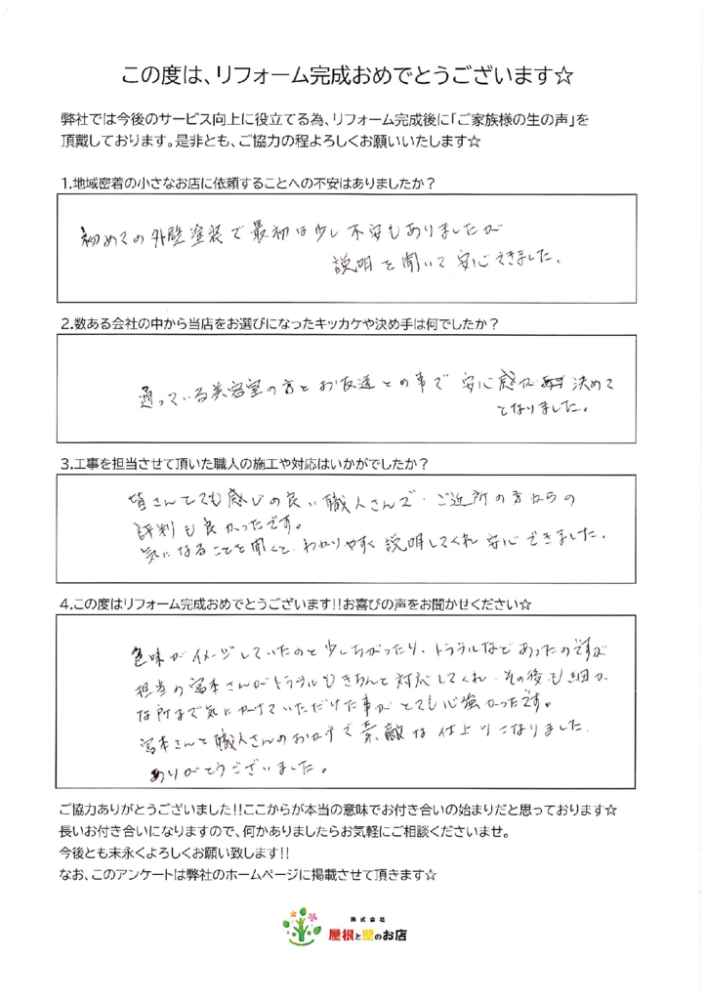 この度は、リフォーム完成おめでとうございます☆
弊社では今後のサービス向上に役立てる為、リフォーム完成後に「ご家族様の生の声」を
頂戴しております。是非とも、ご協力の程よろしくお願いいたします☆
1.地域密着の小さなお店に依頼することへの不安はありましたか？
初めての外壁塗装で最初は少し不安もありましたが
説明を聞いて安心できました。
2.数ある会社の中から当店をお選びになったキッカケや決め手は何でしたか？
通っている美容室の方とお友達との事で安心感が決めて
となりました。
3.工事を担当させて頂いた職人の施工や対応はいかがでしたか？
皆さんとても感じの良い職人さんで、ご近所の方からの
評判も良かったです。
気になることを聞くと、わかりやすく説明してくれ安心できました。
4.この度はリフォーム完成おめでとうございます!!お喜びの声をお聞かせください☆
色味がイメージしていたのと少しちがったり、トラブルなどあったのですが
担当の宮本さんがトラブルもきちんと対応してくれ、その後も細か
な所まで気にかけていただけた事がとても心強かったです。
宮本さんと職人さんのおかげで素敵な仕上りになりました。
ありがとうございました。
ご協力ありがとうございました!!ここからが本当の意味でお付き合いの始まりだと思っております☆
長いお付き合いになりますので、何かありましたらお気軽にご相談くださいませ。
今後とも末永くよろしくお願い致します!!
なお、このアンケートは弊社のホームページに掲載させて頂きます☆
株式会社
屋根と壁のお店